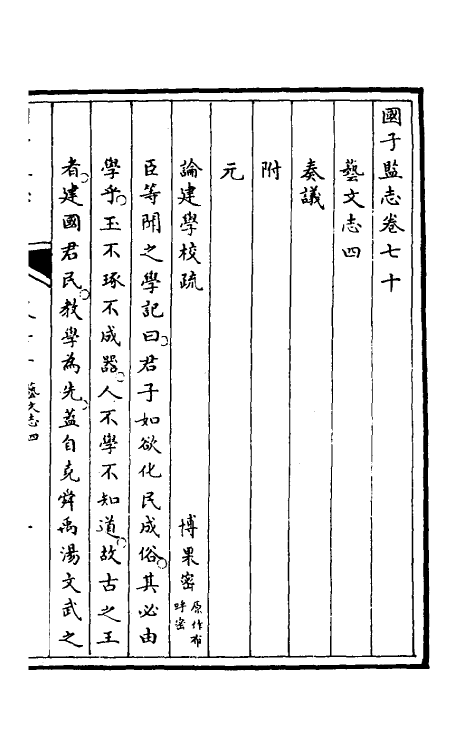 國子監志卷七十
藝文志四
奏議
附
元
論建學校疏 博果密 原作布呼密
臣等聞之學記曰君子如欲化民成俗其必由
學乎玉不琢不成器人不學不知道故古之王
者建國君民教學為先蓋自堯舜禹湯文武之
藝文志四 一